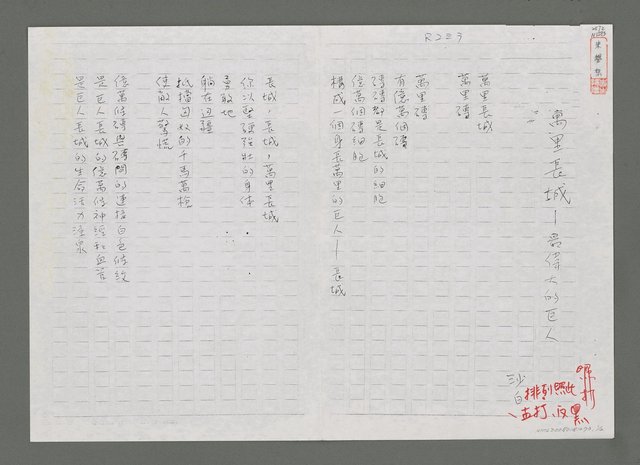 R223
萬里長城—最偉大的巨人
萬里長城
萬里磚
萬里磚
有億萬個磚
磚磚都是長城的細胞
億萬個磚細胞
構成一個身長萬里的巨人—長城
長城，長城，萬里長城
你以堅強強壯的身体
勇敢地
躺在边疆
抵擋匈奴的千馬萬槍
使敵人驚慌
億萬條磚與磚間的連接白色條紋
是巨人長城的億萬條神經和血管
是巨人長城的生命活力湧泉
沙白
排列照此
打、反黑